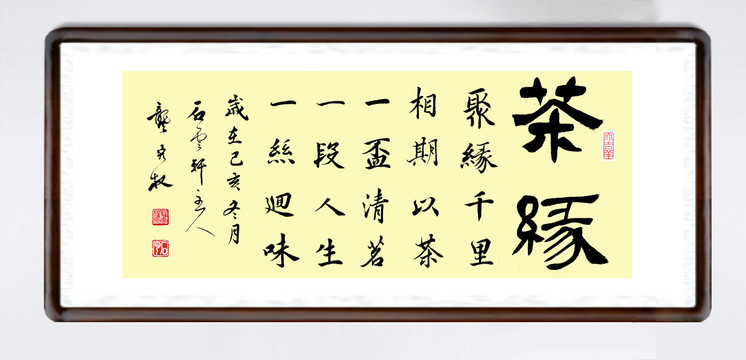 茶緣
聚緣千里
相期以茶
一盃清茗
一段人生
一絲迴味
歲在己亥冬月
石雲軒主人
龔